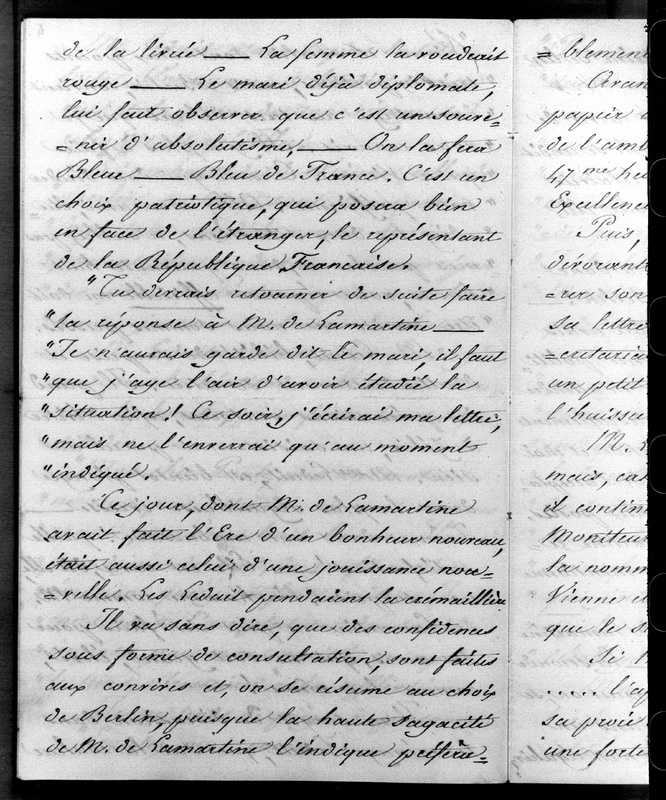 de la livrée — La femme la voudrait
rouge — Le mari déjà diplomate,
lui fait observer que c'est un souve=
=nir d'absolutisme, — On la fera
Bleue — Bleu de France. C'est un
choix patriotique, qui posera bien
en face de l'étranger, le représentant
de la République Francaise.
"Tu devrais retourner de suite faire
"ta réponse à M. de Lamartine —
"Je n'aurais garde dit le mari, il faut
"que j'aye l'air d'avoir étudié la
"situation! Ce soir, j'écrirai ma lettre,
"mais ne l'enverrai qu'au moment
"indiqué.
Ce jour, dont M. de Lamartine
avait fait l'Ere d'un bonheur nouveau,
était aussi celui d'une jouissance nou=
=velle. Les Leduit pendaient la crémaillière
Il va sans dire, que des confidences
sous forme de consultation, sont faites
aux convives et, on se résume au choix
de Berlin, puisque la haute sagacité
de M. de Lamartine l'indique préféra=
= blement
papier
de l'am
47 me
Excellence
Puis,
dévorant
=rer son
sa lettre
=crétaria
un petit
l'huissi
mais,
il contin
Moniteur
la nomm
Vienne
que le
Si
..... l'a
sa proie
une forte